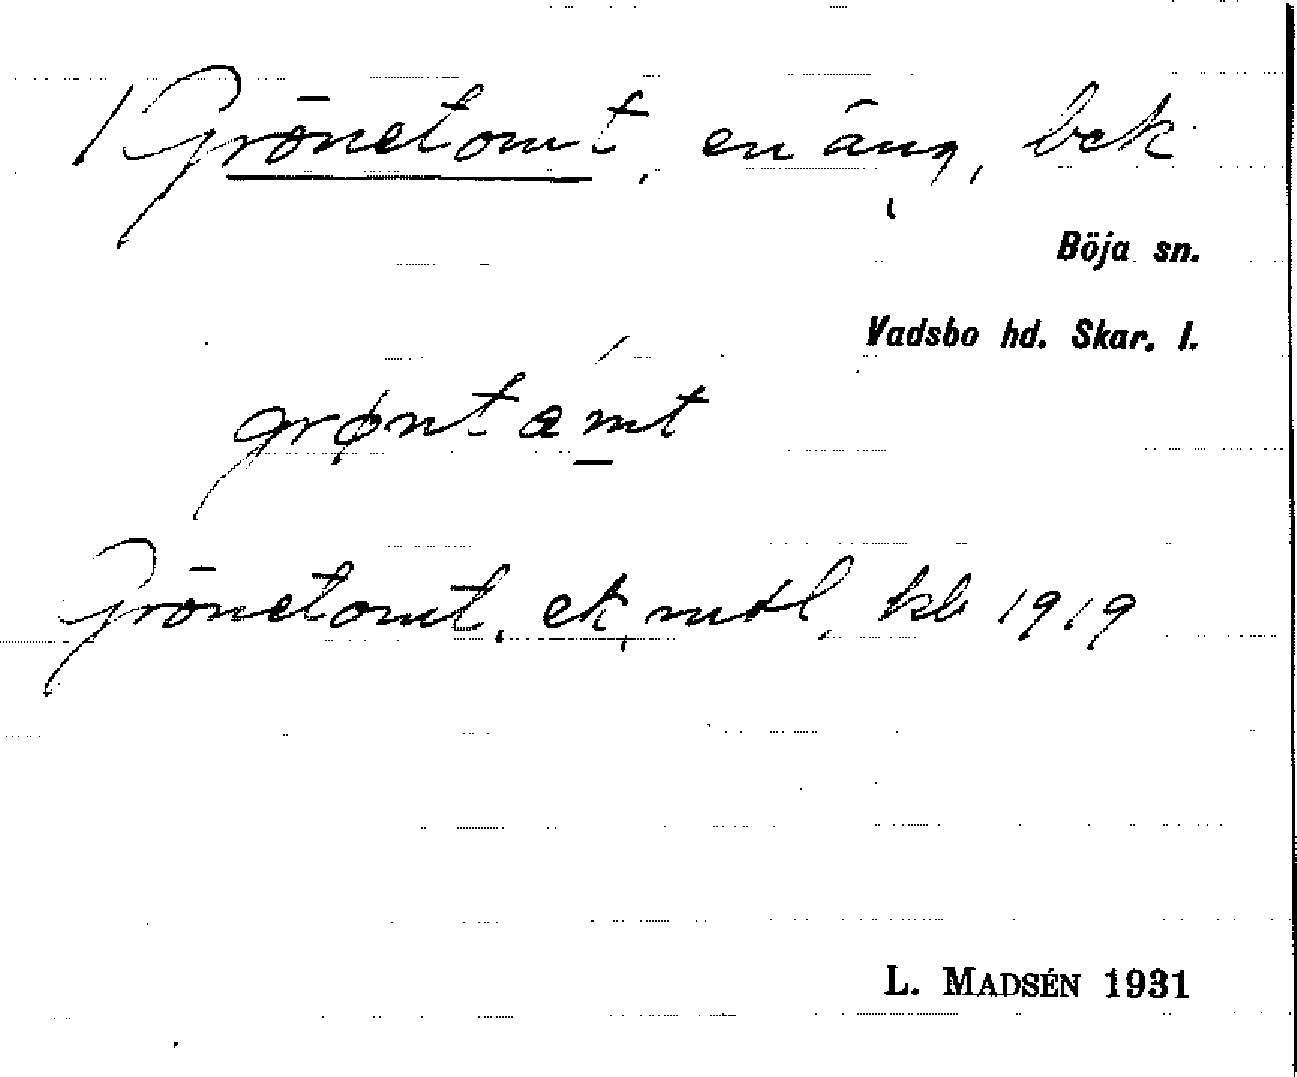 1 Grönetomt, en äng, bek
Böja sn.
Vadsbo hd. Skar. l.
grøntamt
Grönetomt, ek, kb 1919
L. MADSÉN 1931